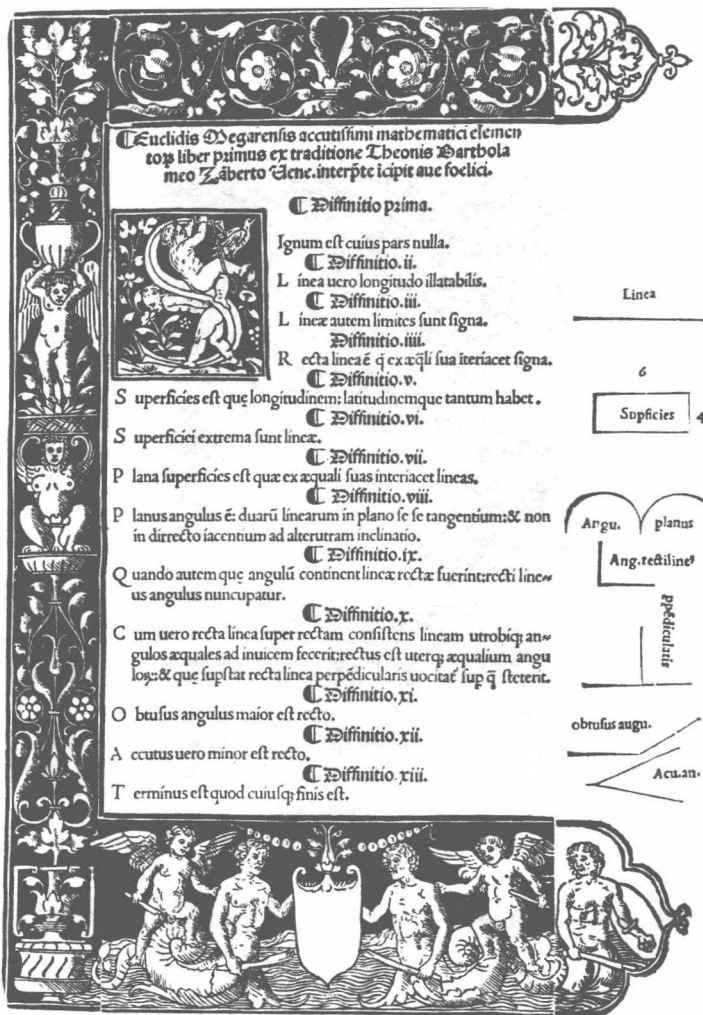 ❡Euclidis Megarensis accutissimi mathematici elemen
toꝝ liber primus ex traditione Theonis Barthola
meo Zãberto Vene. interp̃te ĩcipit aue foelici.
❡ Diffinitio prima.
SIgnum est cuius pars nulla.
❡ Diffinitio.ii.
L inea uero longitudo illatabilis.
❡ Diffinitio.iii.
L ineæ autem limites sunt signa.
Diffinitio.iiii.
R ecta linea ẽ q̃ ex æq̃li sua ĩteriacet signa.
❡ Diffinitio.v.
S uperficies est quę longitudinem: latitudinemque tantum habet.
❡ Diffinitio.vi.
S uperficiei extrema sunt lineæ.
❡ Diffinitio.vii.
P lana superficies est quæ ex æquali suas interiacet lineas.
❡ Diffinitio.viii.
P lanus angulus ẽ: duarũ linearum in plano se se tangentium: & non
in dirrecto iacentium ad alterutram inclinatio.
❡ Diffinitio.ix.
Q uando autem quę angulũ continent lineæ rectæ fuerint: recti line-
us angulus nuncupatur.
❡ Diffinitio.x.
C um uero recta linea super rectam consistens lineam utrobiqꝫ an-
gulos æquales ad inuicem fecerit: rectus est uterqꝫ æqualium angu
loꝝ: & quę supstat recta linea perpẽdicularis uocitat̃ sup q̃ steterit.
❡ Diffinitio.xi.
O btusus angulus maior est recto.
❡ Diffinitio.xii.
A ccutus uero minor est recto.
❡ Diffinitio.xiii.
T erminus est quod cuiusqꝫ finis est.
Linea
6
Supficies 4
Angu. planus
Ang.rectilineꝰ
ppẽdicularis
obtusus angu.
Acu.an.